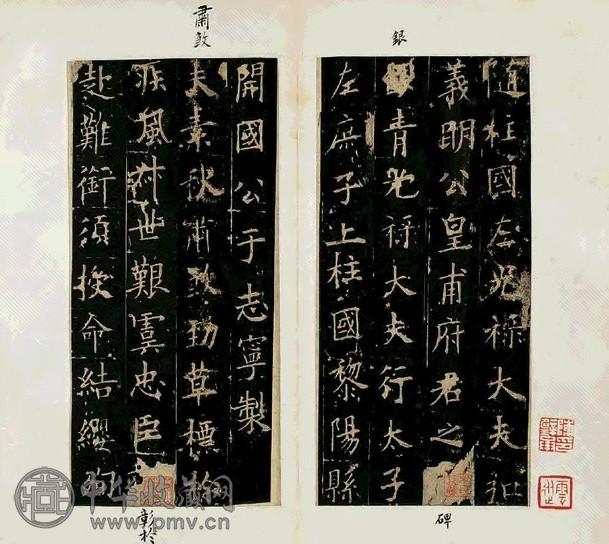 銀
隨柱國左光祿大夫弘
義明公皇甫府君之
青光祿大夫行太子
左庶子上柱國黎陽縣
碑
肅殺
開國公于志寧製
夫素秋肅殺勁草標於
疾風叔世艱虞忠臣
赴難銜須授命結纓
彰於
中华收藏网
www.pmv.cn